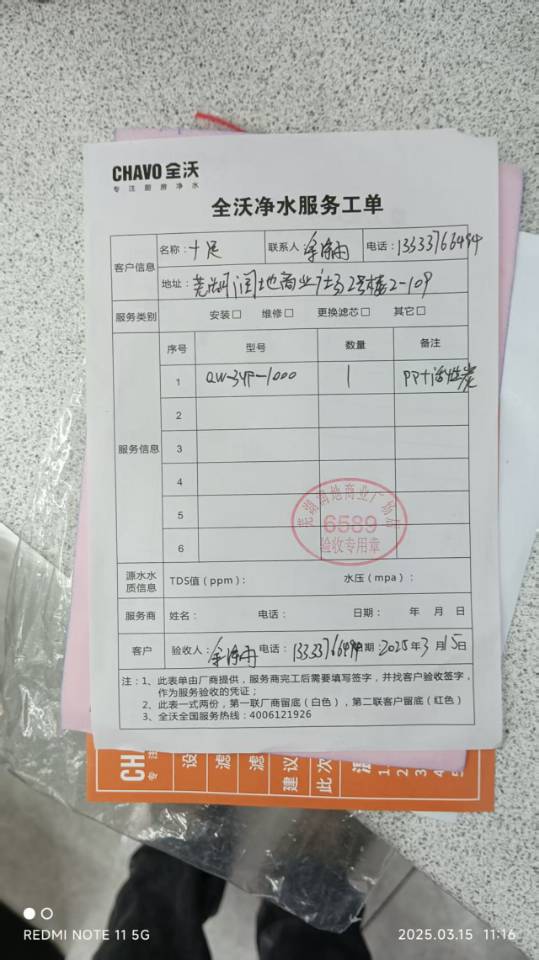 CHAVO 全沃
专注厨房净水
全沃净水服务工单
客户信息 名称：十足 联系人 电话：13333766494
地址：芜湖润地商业广场2号楼2-109
服务类别 安装□ 维修□ 更换滤芯□ 其它□
服务信息 序号 型号 数量 备注
1 QW-34P-1000 1 PP+活性炭
2
3
4
5
6
芜湖润地商业广场店
6589
验收专用章
源水水质信息 TDS值（ppm）： 水压（mpa）：
服务商 姓名： 电话： 日期： 年 月 日
客户 验收人： 电话：13333766494 日期：2025年3月15日
注：1、此表单由厂商提供，服务商完工后需要填写签字，并找客户验收签字，
作为服务验收的凭证；
2、此表一式两份，第一联厂商留底（白色），第二联客户留底（红色）
3、全沃全国服务热线：4006121926
CHA
专 注
设
滤
滤
建议
此次
1
2
3
4
5
REDMI NOTE 11 5G
2025.03.15 11:16